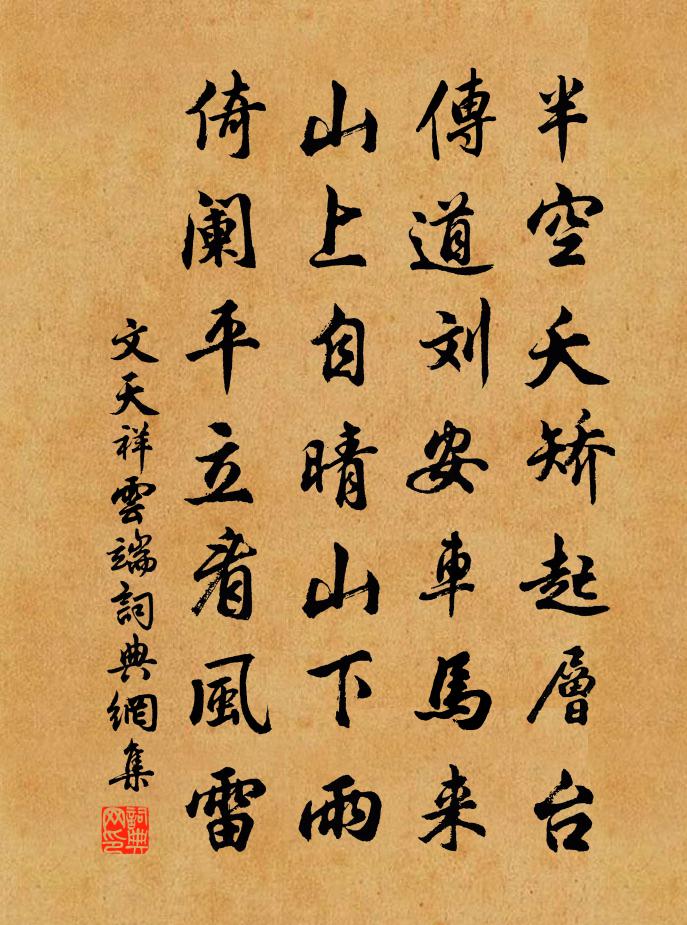 半空夭矫起層台
傳道刘安車馬来
山上自晴山下雨
倚阑平立看風雷
文天祥雲端詞典網集
詞典网印